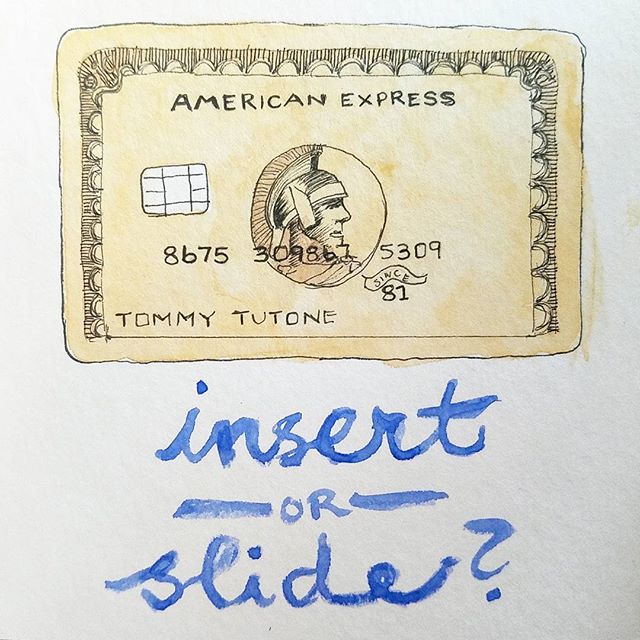 AMERICAN EXPRESS
8675 309867 5309
SINCE
81
TOMMY TUTONE
insert
OR
slide?